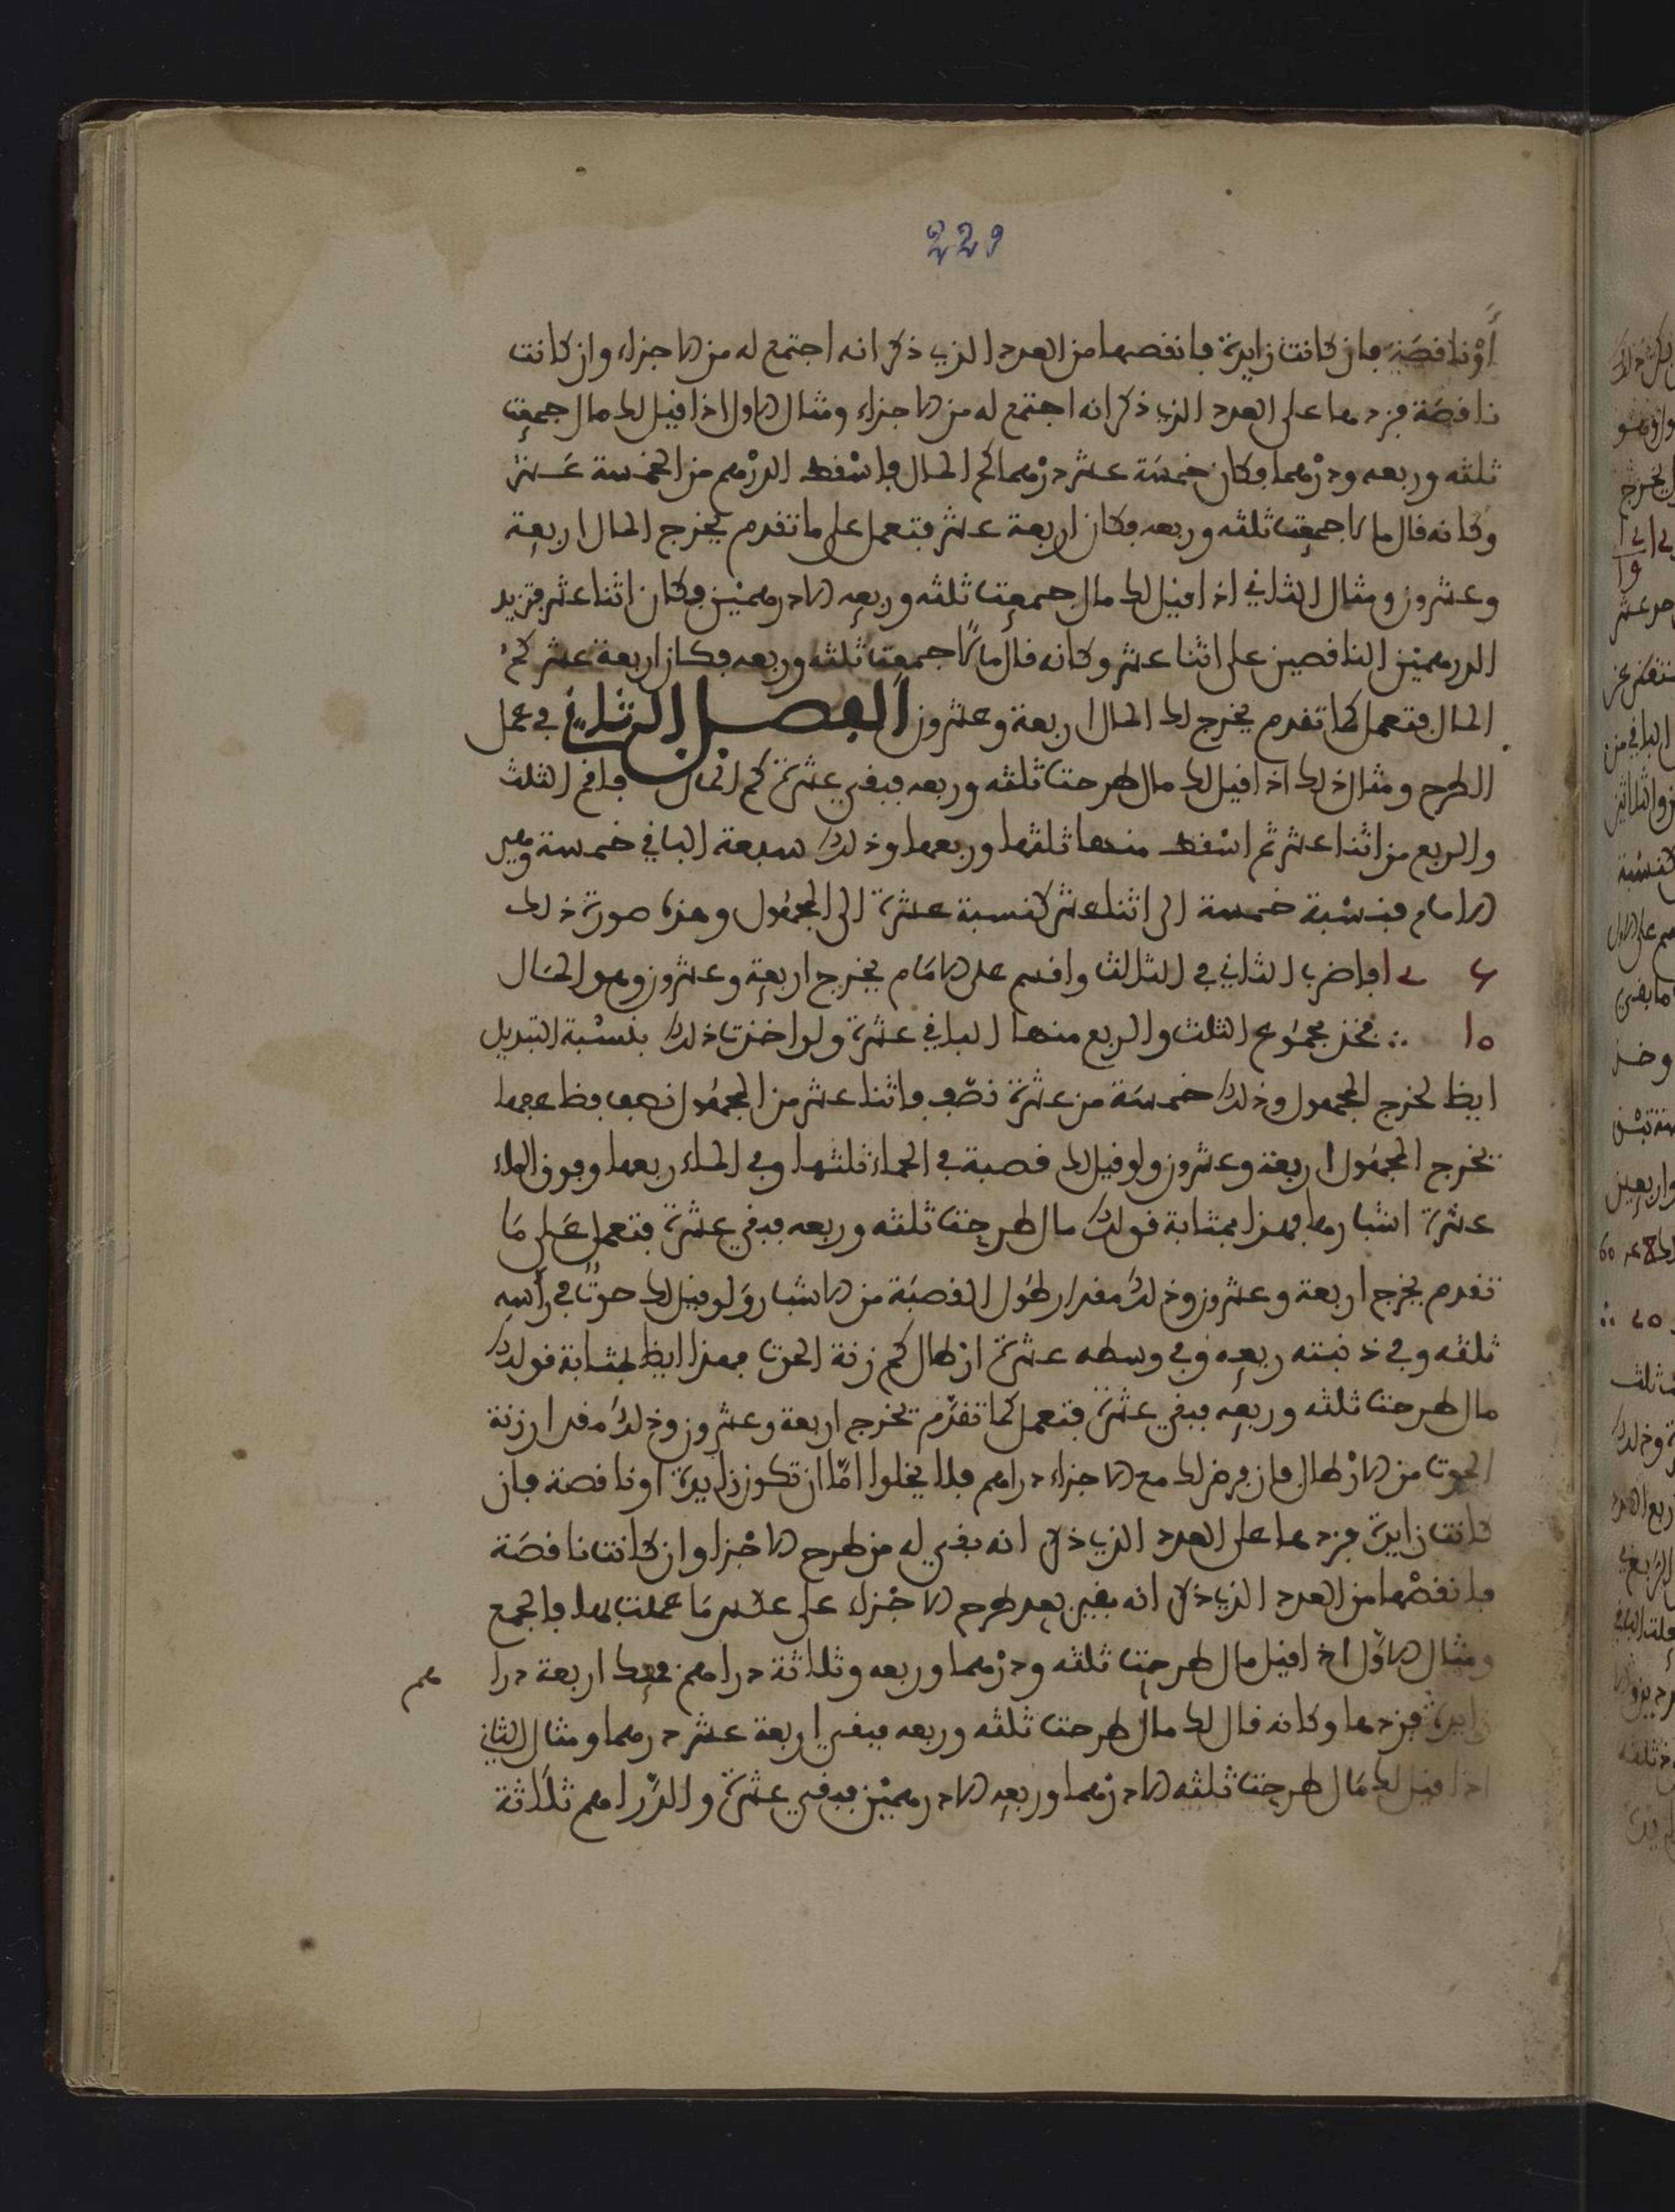 229
أو ناقصة فإن كانت زايدة فانقصها من العدد الذي ذكر انه اجتمع له من الاجزاء وان كانت
ناقصة فزدها على العدد الذي ذكر انه اجتمع له من الاجزاء ومثال الاول اذا قيل لك مال جمعت
ثلثه وربعه ودرهما فكان خمسة عشر درهما كم المال فاسقط الدرهم من الخمسة عشر
وكانه قال مالا جمعت ثلثه وربعه فكان اربعة عشر فتعمل على ما تقدم يخرج المال اربعة
وعشرون ومثال الثاني اذا قيل لك مال جمعت ثلثه وربعه الا درهمين فكان اثنا عشر فتزيد
الدرهمين الناقصين على اثنا عشر وكانه قال مالا جمعت ثلثه وربعه فكان اربعة عشر كم
المال فتعمل كما تقدم يخرج لك المال اربعة وعشرون الفصل الثاني في عمل
الطرح ومثال ذلك اذا قيل لك مال طرحت ثلثه وربعه فبقي عشرة كم المال فاقم الثلث
والربع من اثنا عشر ثم اسقط منها ثلثها وربعها وذلك سبعة الباقي خمسة وهي
الامام فنسبة خمسة الى اثنا عشر كنسبة عشرة الى المجهول وهذه صورة ذلك
فاضرب الثاني في الثالث واقسم على الامام يخرج اربعة وعشرون وهو المال
فخذ مجموع الثلث والربع منها الباقي عشرة ولو اخذت ذلك بنسبة التبديل
ايظا لخرج المجهول وذلك خمسة من عشرة نصف فاثنا عشر من المجهول نصف فظاعفها
تخرج المجهول اربعة وعشرون ولو قيل لك قصبة في الحماء ثلثها وفي الماء ربعها وفوق الماء
عشرة اشبار فهذا بمثابة قولك مال طرحت ثلثه وربعه فبقي عشرة فتعمل على ما
تقدم يخرج اربعة وعشرون وذلك مقدار طول القصبة من الاشبار ولو قيل لك حوت في رأسه
ثلثه وفي ذنبته ربعه وفي وسطه عشرة ارطال كم زنة الحوت فهذا ايظا بمثابة قولك
مال طرحت ثلثه وربعه فبقي عشرة فتعمل كما تقدم تخرج اربعة وعشرون وذلك مقدار زنة
الحوت من الارطال فان فرض لك مع الاجزاء دراهم فلا يخلوا امّا ان تكون زايدة او ناقصة فان
كانت زايدة فزدها على العدد الذي ذكر انه بقي له من طرح الاجزا وان كانت ناقصة
فانقصها من العدد الذي ذكر انه بقي بعد طرح الاجزاء على عكس ما عملت بها في الجمع
ومثال الاول اذا قيل مال طرحت ثلثه ودرهما وربعه وثلاثة دراهم اربعة درا هم
زايدة فزدها وكانه قال لك مال طرحت ثلثه وربعه فبقي اربعة عشر درهما ومثال الثاني
اذا قيل لك مال طرحت ثلثه الا درهما وربعه الا درهمين فبقي عشرة والدراهم ثلاثة